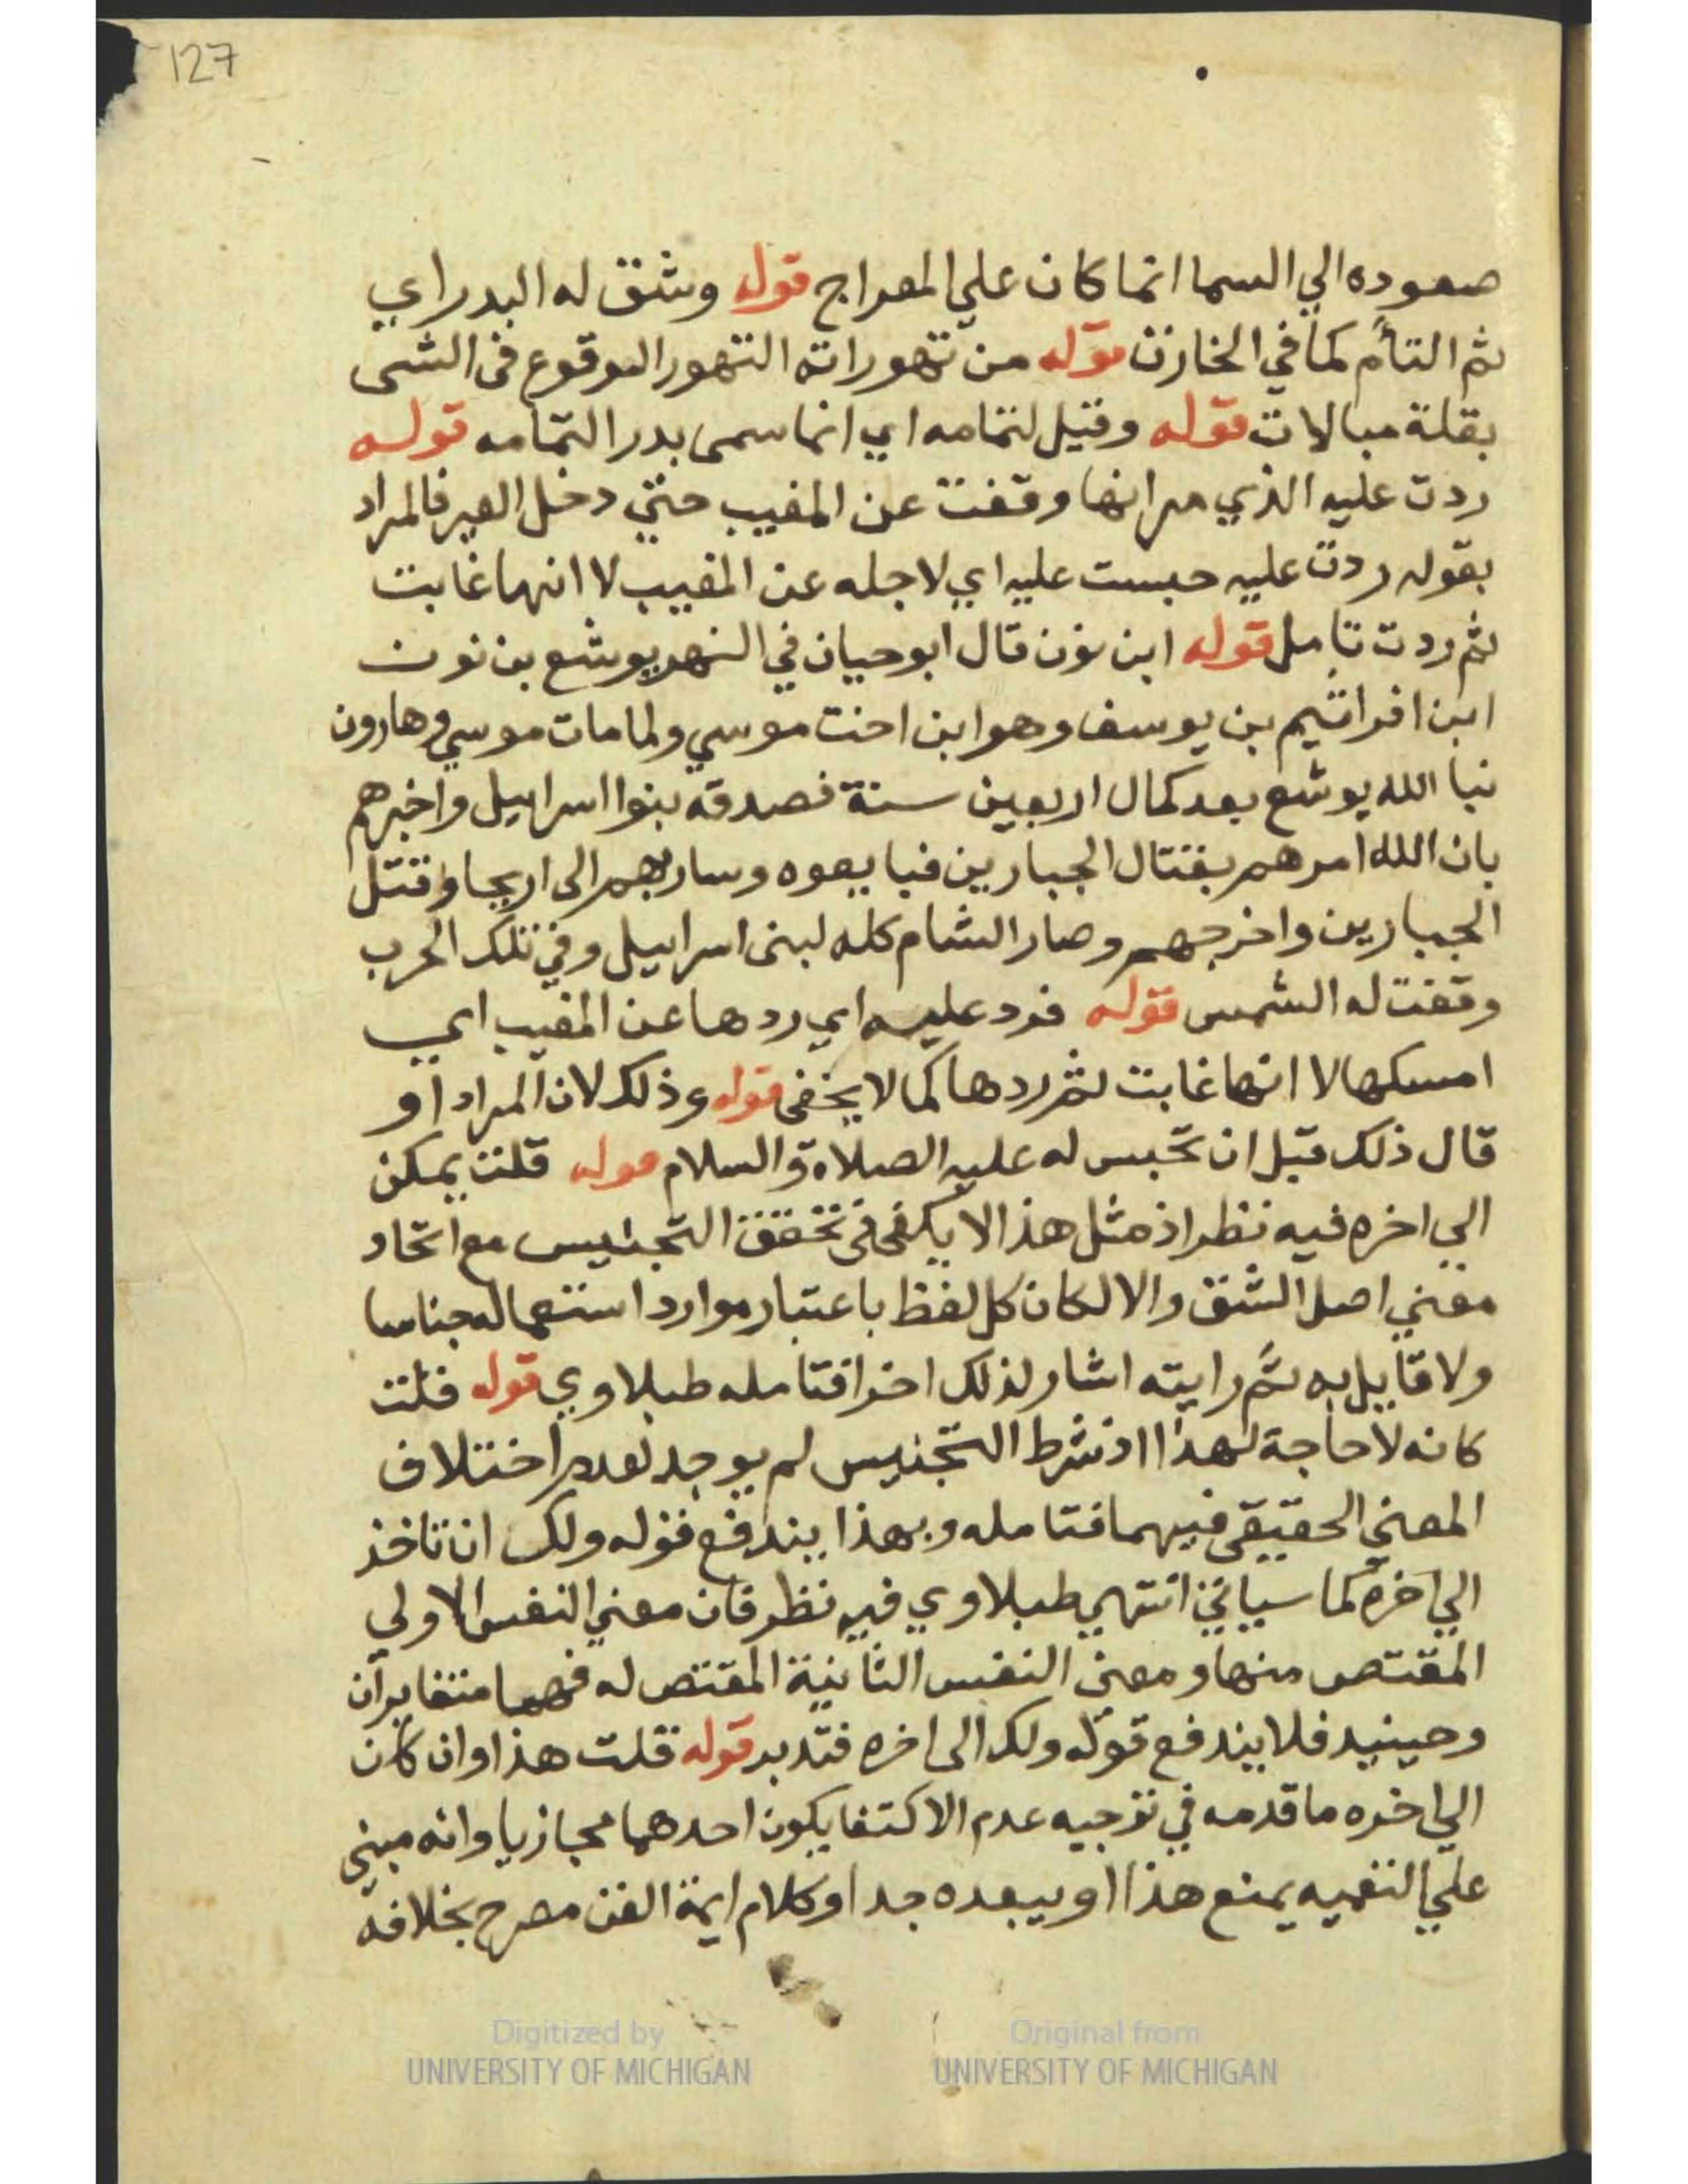 127
صعوده الي السما انما كان علي المعراج قوله وشق له البدر اي
ثم التأم كما في الخازن قوله من تهوراته التهور الوقوع في الشى
بقلة مبالات قوله وقيل لتمامه اي انما سمى بدرا لتمامه قوله
ردت عليه الذي مر انها وقفت عن المغيب حتي دخل العير فالمراد
بقوله ردت عليه حبست عليه اي لاجله عن المغيب لا انها غابت
ثم ردت تامل قوله ابن نون قال ابو حيان في النهر يوشع بن نون
ابن افراثيم بن يوسف وهو ابن اخت موسي ولما مات موسي وهارون
نبا الله يوشع بعد كمال اربعين سنة فصدقه بنوا اسراييل واخبرهم
بان الله امرهم بقتال الجبارين فبايعوه وسار بهم الى اريحا وقتل
الجبارين واخرجهم وصار الشام كله لبنى اسراييل وفي تلك الحرب
وقفت له الشمس قوله فرد عليه اي ردها عن المغيب اي
امسكها لا انها غابت ثم ردها كما لا يخفى قوله وذلك لان المراد او
قال ذلك قبل ان تحبس له عليه الصلاة والسلام قوله قلت يمكن
الي اخره فيه نظر اذ مثل هذا لا يكفى في تحقق التجنيس مع اتحاد
معني اصل الشق والا لكان كل لفظ باعتبار موارد استعماله جناسا
ولا قايل به ثم رايته اشار لذلك اخرا فتامله طبلاوي قوله قلت
كانه لا حاجة لهذا اذ شرط التجنيس لم يوجد لعدم اختلاف
المعني الحقيقى فيهما فتامله وبهذا يندفع قوله ولك ان تاخذ
الي اخره كما سياتي انتهي طبلاوي فيه نظر فان معني النفس الاولي
المقتص منها ومعني النفس الثانية المقتص له فهما متغايران
وحينيد فلا يندفع قوله ولك الى اخره فتدبر قوله قلت هذا وان كان
الي اخره ما قدمه في توجيه عدم الاكتفا بكون احدهما مجازيا وانه مبني
علي التعميه يمنع هذا او يبعده جدا وكلام ايمة الفن مصرح بخلافه
Digitized by
UNIVERSITY OF MICHIGAN
Original from
UNIVERSITY OF MICHIGAN